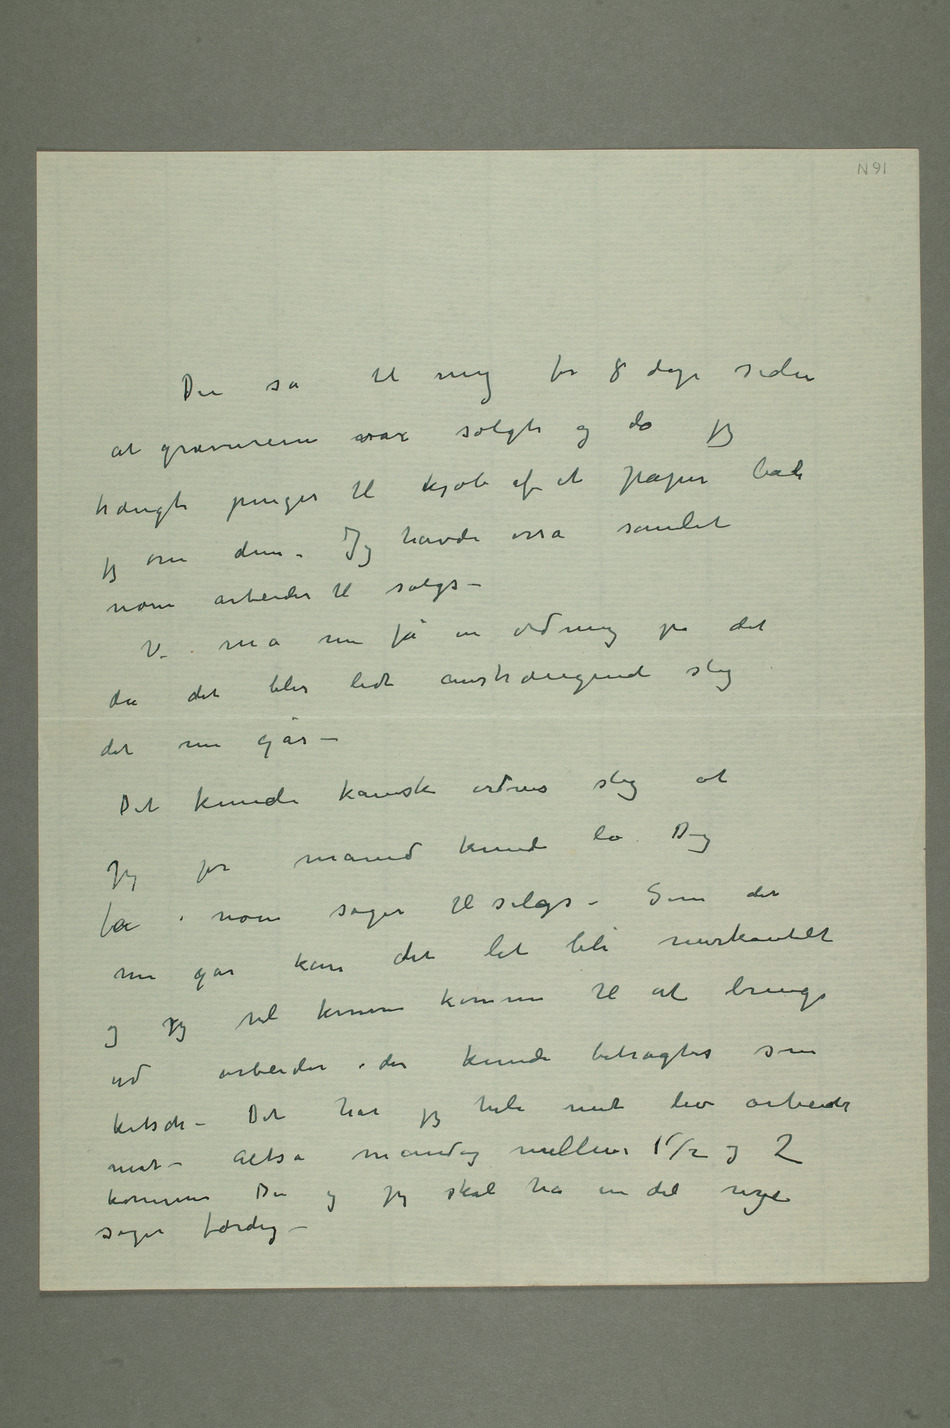 N 91
Du sa til mig for 8 dage siden
at gravurerne var solgte og da jeg
trængte penger til kjøb af et papir bad
jeg om dem – Jeg havde osså samlet
noen arbeider til salgs –
Vi må nu få en ordning på det
da det blir lidt anstrængende slig
det nu går –
Det kunde kanske ordnes slig at
jeg pr måned kunde la Dig
få noen sager til salgs – Som det
nu går kan det let bli merkantilt
og jeg vil kunne komme til at bringe
ud arbeider der kunde betragtes som
kitsch – Det har jeg hele mit liv arbeidet
mot – Altså mandag mellem 1 1/2 og 2
kommer Du og jeg skal ha en del nye
sager færdig –